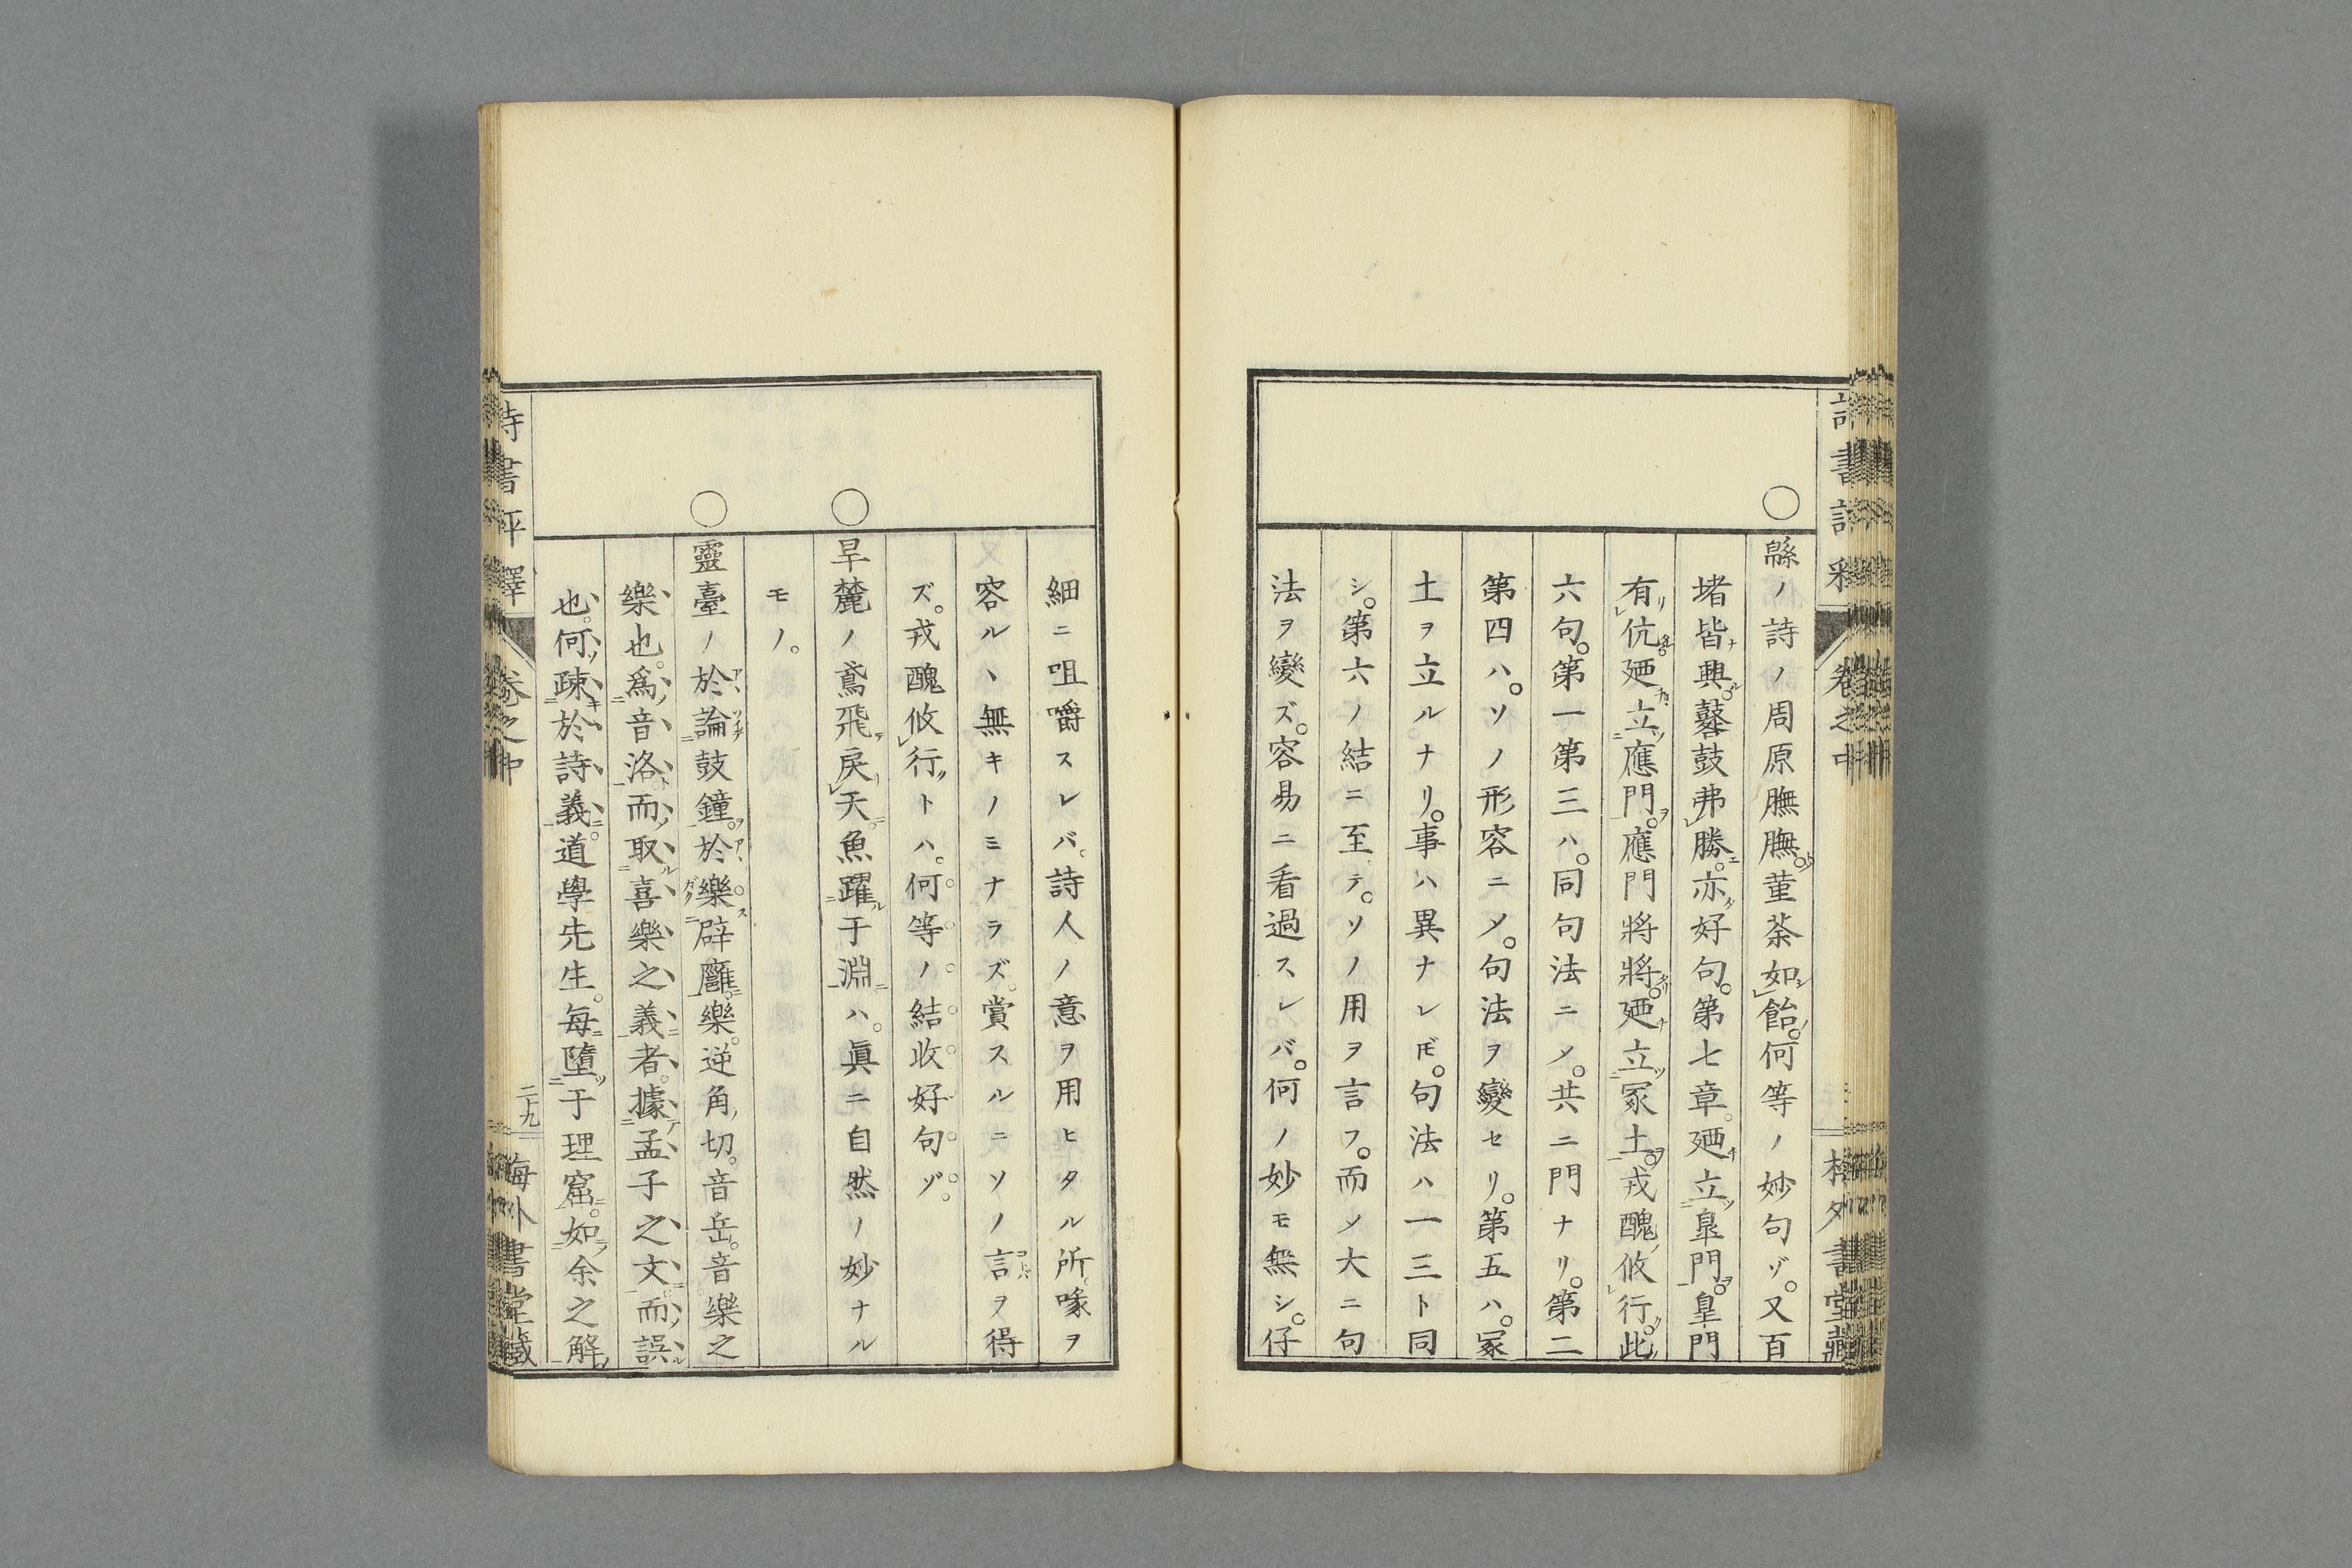 ○
緜ノ詩ノ周原膴膴菫荼如飴。何等ノ妙句ゾ。又百
堵皆興。鼛鼓弗勝。亦好句。第七章。廼立皐門。皐門
有伉廼立應門。應門將將。廼立冢土。戎醜攸行。此
六句。第一第三ハ。同句法ニメ。共ニ門ナリ。第二
第四ハ。ソノ形容ニメ。句法ヲ變セリ。第五ハ。冢
土ヲ立ルナリ。事ハ異ナレ𪜈。句法ハ一三ト同
シ。第六ノ結ニ至テ。ソノ用ヲ言フ。而メ大ニ句
法ヲ變ズ。容易ニ看過スレバ。何ノ妙モ無シ。仔
細ニ咀嚼スレバ。詩人ノ意ヲ用ヒタル所。喙ヲ
容ルヽ無キノミナラズ。賞スルニソノ言ヲ得
ズ。戎醜攸行トハ。何等ノ結收好句ゾ。
○
旱麓ノ鳶飛戾天魚躍于淵ハ。眞ニ自然ノ妙ナル
モノ。
○
靈臺ノ於論鼓鐘。於樂辟廱。樂。逆角切。音岳。音樂之
樂也。爲音洛而取喜樂之義者。據孟子之文。而誤
也。何疎於詩義。道學先生。每墮于理窟。如余之解
詩書評釋
卷之中
二十九
梅外書堂藏